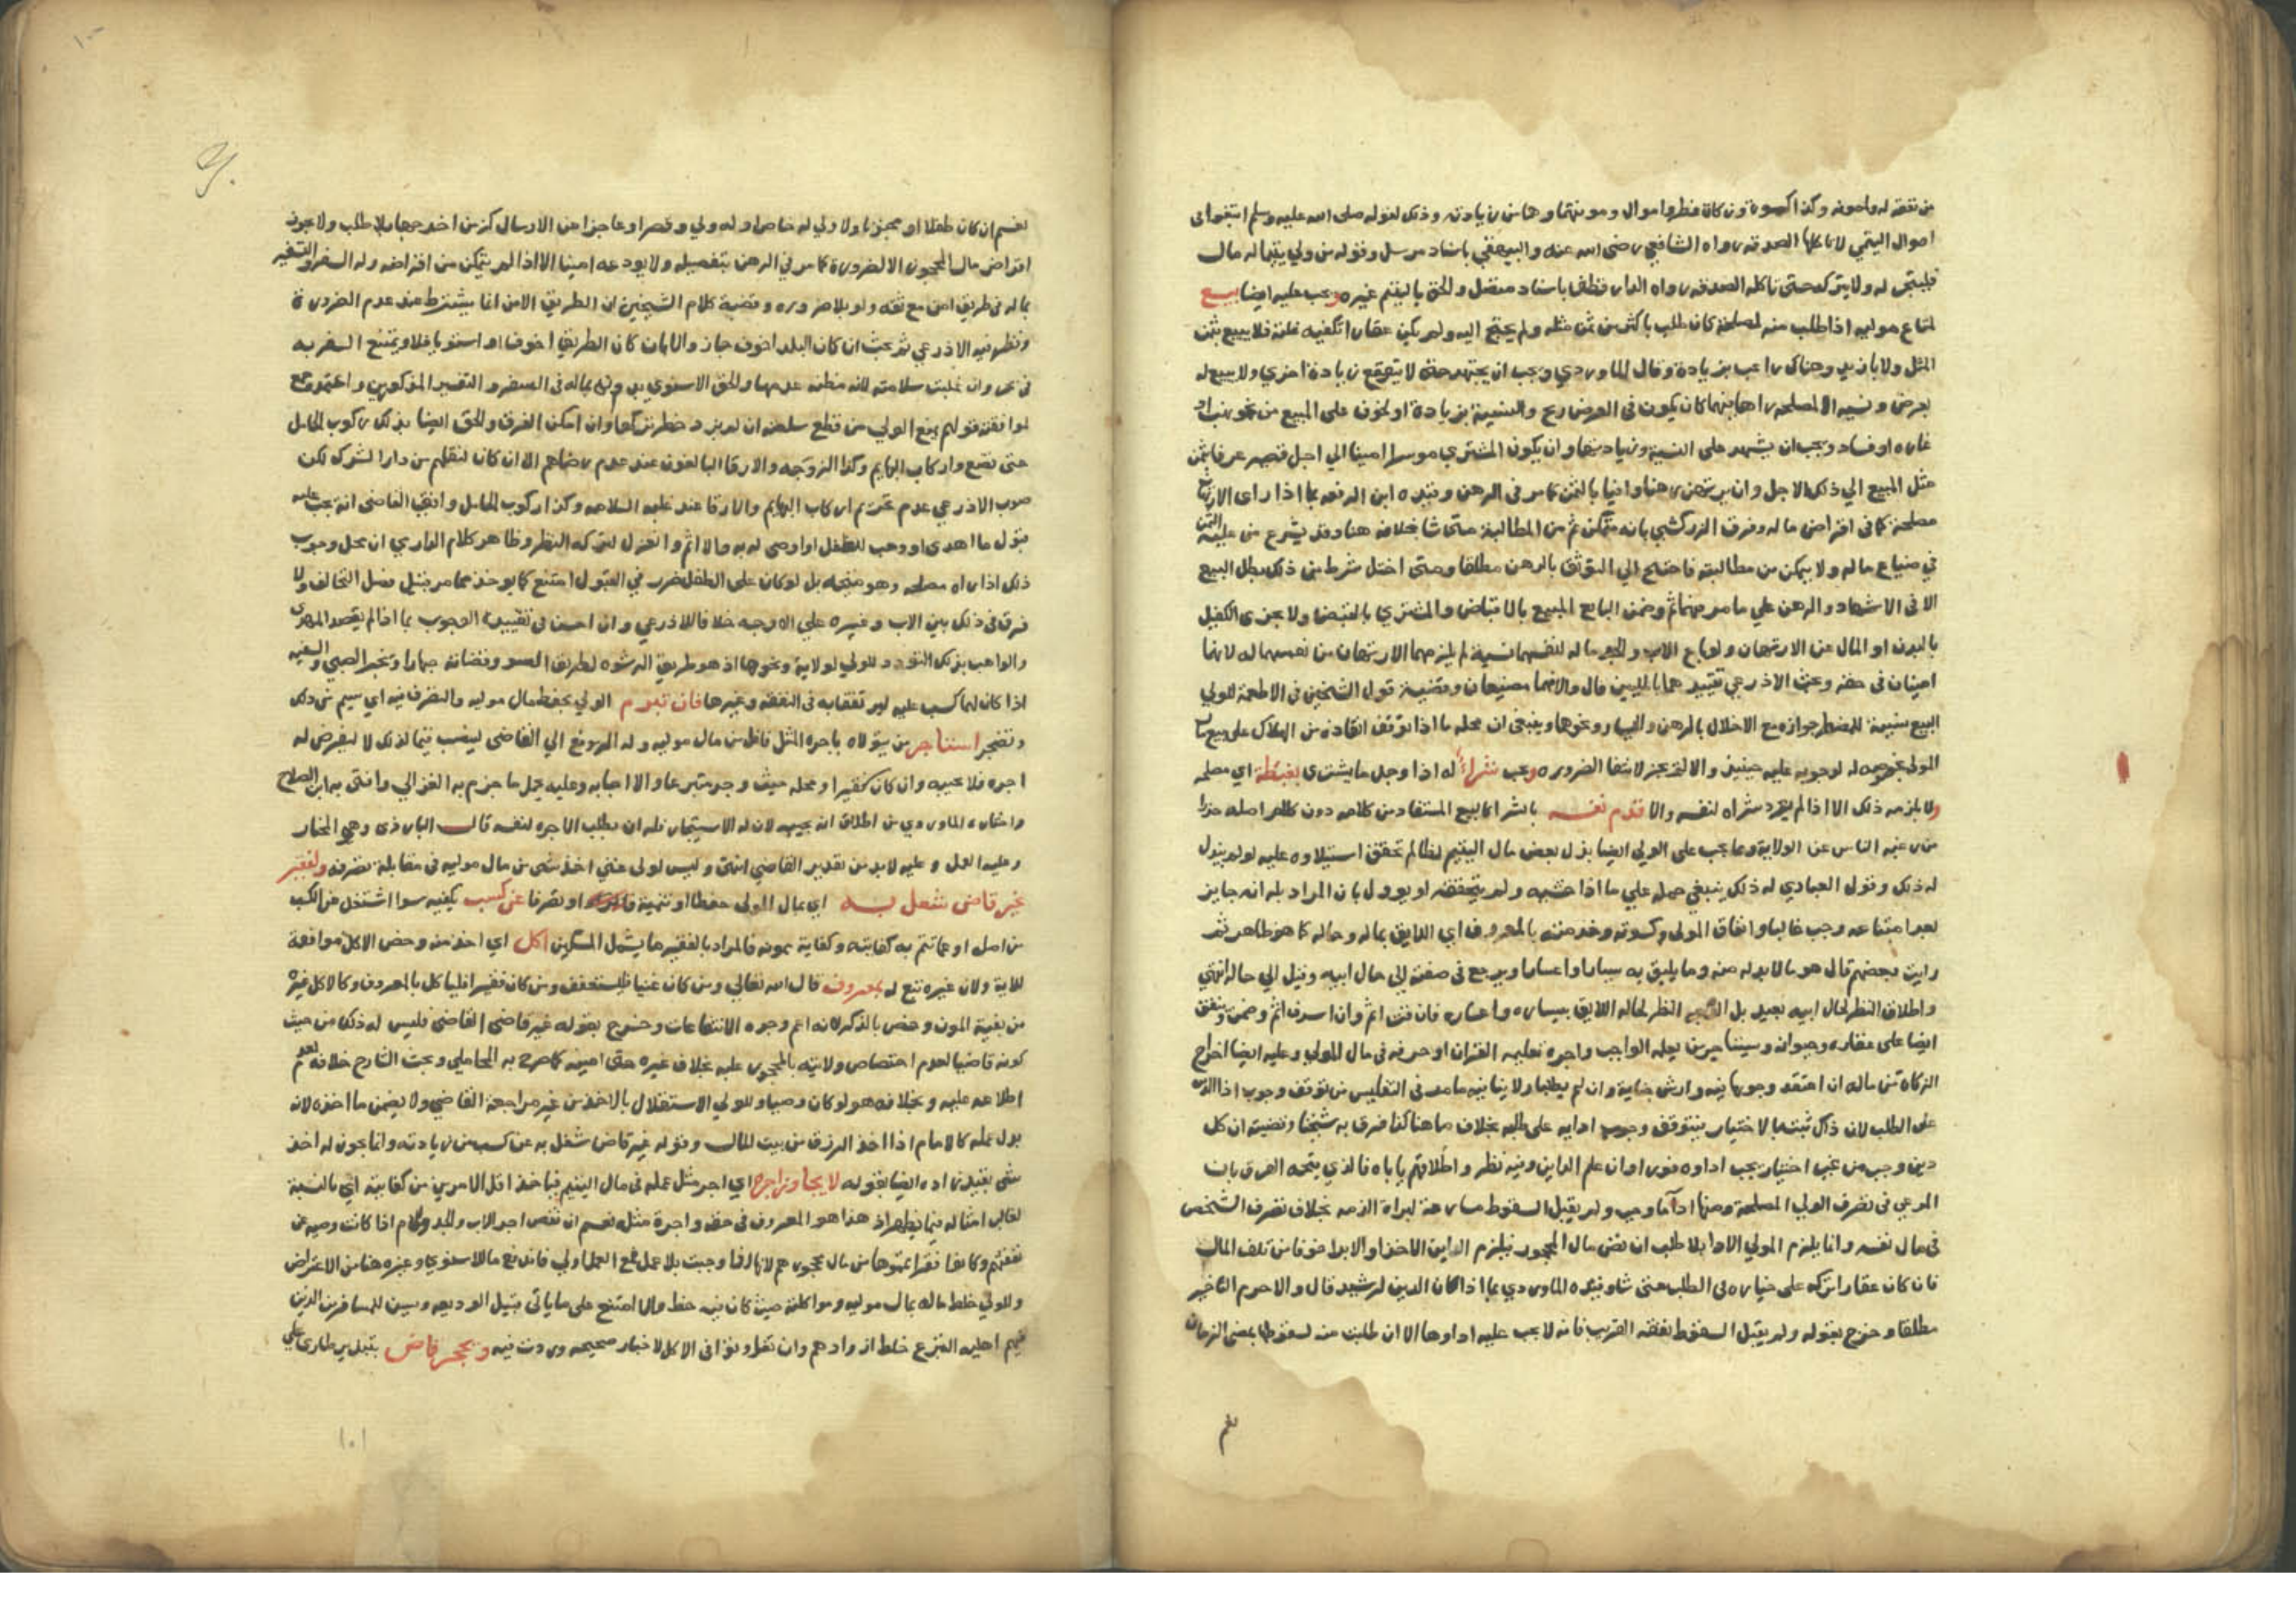 من نفقة له ولمونه وكذا كسوة وزكاة فطر واموال ومونتها وهذا من زيادته وذلك لقوله صلى الله عليه وسلم ابتغوا في
اموال اليتمي لا تاكلها الصدقه رواه الشافعي رضى الله عنه والبيهقي باسناد مرسل وقوله من ولي يتيما له مال
فليتجر له ولا يتركه حتى تاكله الصدقه رواه الدارقطني باسناد والحق باليتيم غيره ويجب عليه ايضا بيع
متاع موليه اذا طلب منه لمصلحة كان طلب باكثر من ثمن مثله ولم يحتج اليه ولم يكن عقارا تكفيه غلته فلا يبيع بثمن
المثل ولا بازيد وهناك راغب بزيادة وقال الماوردي ويجب ان يجتهد حتى لا يتوقع زيادة اخري ولا يبيع له
بعرض ونسية الا لمصلحه راها بينهما كان يكون في العرض ربح والنسية بزيادة او لخوف على المبيع من نحو
غاره او فساد ويجب ان يشهد على النسية وزيادتها وان يكون المشتري موسرا امينا الي اجل قصير عرفا بثمن
مثل المبيع الي ذلك الاجل وان يرتهن رهنا وافيا بالثمن كما مر في الرهن وقيده ابن الرفعه بما اذا راى الارتهان
مصلحة كما في اقراض ماله وفرق الزركشي بانه متمكن ثم من المطالبة متى شا بخلافه هنا وقد يشرع من عليه الثمن
في ضياع ماله ولا يمكن من مطالبته فاحتيج الي التوثق بالرهن مطلقا ومتى اختل شرط من ذلك بطل البيع
الا في الاشهاد والرهن علي ما مر فيهما ثم وضمن البايع المبيع بالاقباض والمشتري بالقبض ولا يجزى الكفيل
بالبدن او المال عن الارتهان ولو باع الاب والجد ماله لنفسهما نسية لم يلزمهما الارتهان من نفسهما له لانهما
امينان في حقه وبحث الاذرعي تقييدهما بالمليين قال والا فهما مضيعان وقضية قول الشيخين في الاطعمة للولي
البيع نسية للمضطر جوازه مع الاخلال بالرهن واليسار ونحوها وينبغي ان محله ما اذا توقف انقاذه من الهلاك على بيع مال
المولى له لوجوبه عليه حينيذ والا لم يجز لانتفا الضروره ويجب شراء له اذا وجد ما يشترى بغبطة اي مصلحه
ولا يلزمه ذلك الا اذا لم يرد شراه لنفسه والا قدم نفسه بالشرا كالبيع المستفاد من كلامه دون كلام اصله حذرا
من رغبه الناس عن الولاية ومما يجب على الولي ايضا بذل بعض مال اليتيم لظالم تحقق استيلاوه عليه لو لم يبذل
له ذلك وقول العبادي له ذلك ينبغي حمله علي ما اذا خشيه ولم يتحققه او يوول بان المراد بله انه جايز
بعد امتناعه وجب غالبا وانفاق المولى وكسوته وخدمته بالمعروف اي اللايق بماله وحاله كما هو ظاهر ثم
رايت بعضهم قال هو مالابد له منه وما يليق به يسارا واعسارا ويرجع في صفته الى حال ابيه وقيل الي حاله انتهي
واطلاق النظر لحال ابيه بعيد بل النظر لحاله اللايق بيساره واعساره فان قتر اثم وان اسرف اثم وضمن وينفق
ايضا على عقاره وحيوانه ويستاجر من يعلمه الواجب واجرة تعليمه القران او حرفه في مال المولي وعليه ايضا اخراج
الزكاة من ماله ان اعتقد وجوبها فيه وارش جناية وان لم يطلبا ولا ينافيه ما مر في التفليس من توقف وجوب اذا الدين
على الطلب لان ذاك ثبت بالاختيار فيتوقف وجوب ادايه على طلبه بخلاف ما هنا كذا فرق به شيخنا وقضيته ان كل
دين وجب من غير اختيار يجب اداوه فورا وان علم الداين وفيه نظر واطلاقهم ياباه فالذي يتجه الفرق بان
المرعي في تصرف الولي المصلحة ومنها اداما وجب ولم يقبل السقوط مسارعة لبراة الذمه بخلاف تصرف الشخص
في مال نفسه وانما يلزم المولي الادا بلا طلب ان نض مال المحجور فيلزم الداين الاخذ او الابرا خوفا من تلف المال
فان كان عقارا تركه على خياره في الطلب متى شا وقيده الماوردي بما اذا كان الدين لرشيد قال والا حرم التاخير
مطلقا وخرج بقوله ولم يقبل السقوط نفقه القريب فانه لا يجب عليه اداوها الا ان طلبت منه لسقوطها بمضى الزمان
نعم
نعم ان كان طفلا او مجنونا ولا ولي له خاص او له ولي وقصر او عاجزا عن الارسال كزمن اخرجها بلا طلب ولا يجوز
اقراض مال المحجور الا لضرورة كما مر في الرهن بتفصيله ولا يودعه امينا الا اذا لم يتمكن من اقراضه وله السفر والتسفير
بماله في طريق امن مع ثقة ولو بلا ضروره وقضية كلام الشيخين ان الطريق الامن انما يشترط عند عدم الضرورة
ونظر فيه الاذرعي ثم بحث ان كان البلد اخوف جاز والا بان كان الطريق اخوف او استويا فلا ويمتنع السفر به
في بحر وان غلبت سلامته لانه مظنه عدمها والحق الاسنوي به ونهر بماله في السفر والتفسير المذكورين واعتمده جمع
لموافقته قولهم يمنع الولي من قطع سلعته ان لم يزد خطر تركها وان امكن الفرق والحق ايضا بذلك ركوب الحامل
حتى تضع واركاب البهايم وكذا الزوجه والارقا البالغون عند عدم رضاهم الا ان كان لنقلهم من دار الشرك لكن
صوب الاذرعي عدم تحريم اركاب البهايم والارقا عند غلبه السلامه وكذا ركوب الحامل وافتى القاضى انه يجب عليه
قبول ما اهدى او وهب للطفل او اوصى له به والا اثم وانعزل لتركه النظر وظاهر كلام الرازي ان محل وجوب
ذلك اذا راه مصلحه وهو متجه بل لو كان على الطفل ضرر في القبول امتنع كما يوخذ مما مر قبيل فصل التحالف ولا
فرق في ذلك بين الاب وغيره علي الاوجه خلافا للاذرعي وان احسن في تقييده الوجوب بما اذا لم يقصد المهدى
والواهب بذلك التودد للولي لولاية ونحوها اذ هو طريق الرشوه لطريق السو وقضاته جهارا ويجبر الصبي والسفيه
اذا كان لهما كسب عليه ليرتفقا به في النفقه وغيرها فان تبرم الولي بحفظ مال موليه والتصرف فيه اي سيم من ذلك
وتضجر استاجر من يتولاه باجره المثل فاقل من مال موليه وله الرفع الي القاضى لينصب قيما لذلك لا ليفرض له
اجره فلا يجيبه وان كان فقيرا ومحله حيث وجد متبرعا والا اجابه وعليه يحمل ما جزم به الغزالي وافتى به ابن الصلاح
واختاره الماوردي من اطلاق انه يجيبه لان له الاستيجار فله ان يطلب الاجره لنفسه قال البارزى وهو المختار
وعليه العمل وعليه لابد من تقدير القاضي انتهى وليس لولى غني اخذ شى من مال موليه في مقابلة تصرفه ولفقير
غير قاض شغل به اي بمال المولى حفظا او تنمية او تصرفا عن كسب يكفيه سوا اشتغل عن الكسب
من اصله او عما تتم به كفايته وكفاية ممونه فالمراد بالفقير ما يشمل المسكين اكل اي اخذ منه وخص الاكل موافقة
للاية ولان غيره تبع له بمعروف قال الله تعالي ومن كان غنيا فليستعفف ومن كان فقيرا فلياكل بالمعروف وكالاكل غيره
من بقية المون وخص بالذكر لانه اعم وجوه الانتفاعات وخرج بقوله غير قاضى القاضى فليس له ذلك من حيث
كونه قاضيا لعدم اختصاص ولايته بالمحجور عليه بخلاف غيره حتى امينه كما صرح به المحاملي وبحث الشارح خلافه لعدم
اطلاعه عليه وبخلافه هو لو كان وصيا وللولي الاستقلال بالاخذ من غير مراجعة القاضي ولا يضمن ما اخذه لانه
بدل عمله كالامام اذا اخذ الرزق من بيت المال وقوله غير قاض شغل به عن كسب من زيادته وانما يجوز له اخذ
شى بقيد زاده ايضا بقوله لا يجاوز اجره اي اجر مثل عمله في مال اليتيم فياخذ اقل الامرين من كفايته اي بالنسبة
لغالب امثاله فيما يظهر اذ هذا هو المعروف في حقه واجرة مثله نعم ان نقص اجر الاب والجد والام اذا كانت وصيه عن
نفقتهم وكانوا فقرا تمموها من مال محجورهم لانها اذا وجبت بلا عمل فمع العمل اولي فاندفع ما للاسنوي وغيره هنا من الاعتراض
وللولي خلط ماله بمال موليه ومواكلته حيث كان فيه حظ والا امتنع على ما ياتي قبيل الوديعه ويسن للمسافرين الذين
فيهم اهليه التبرع خلط ازوادهم وان تفاوتوا في الاكل لاخبار صحيحه وردت فيه وبحجر قاض بقبل يرى طارى علي
١٠١